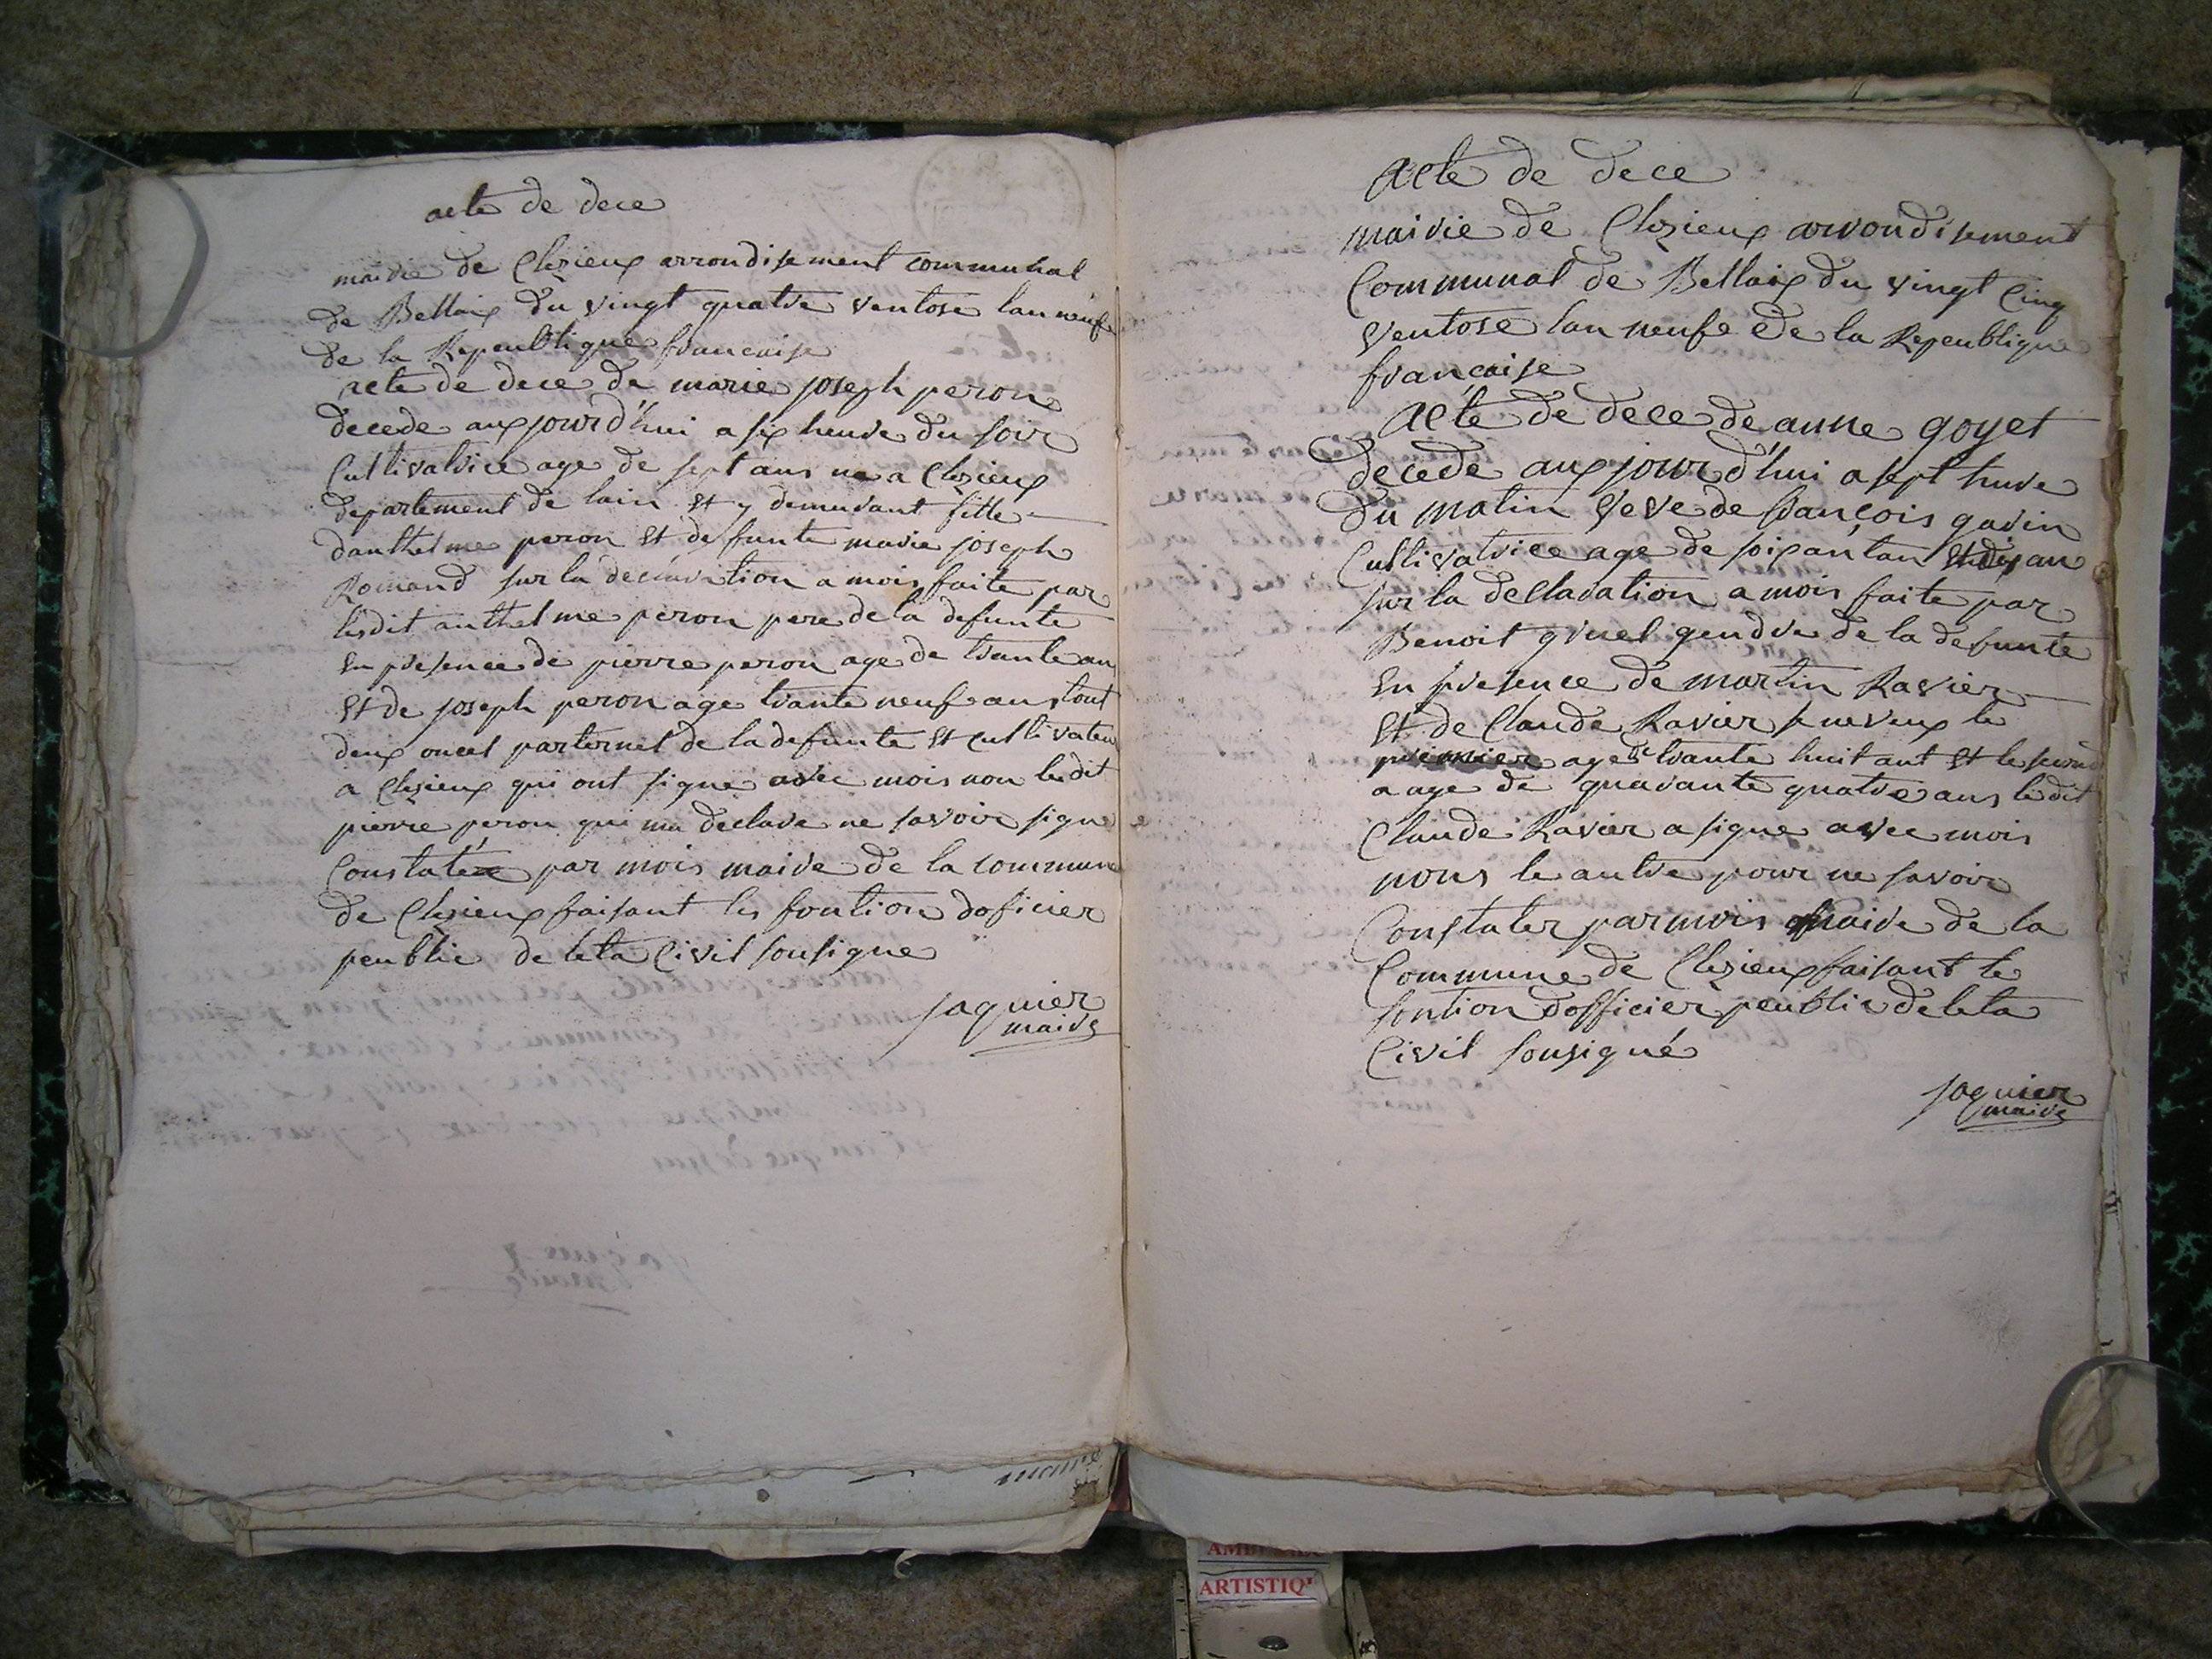 acte de dece
mairie de Clezieux arrondisement communal
de Bellaix du vingt quatre ventose lan neufe
de la Repeublique francaise
acte de dece de marie joseph peron
decede aux jourd'hui a six heure du soir
Cultivatrice age de sept ans ne a Clezieux
departement de lain et y demurant fille
danthelme peron et defunte marie joseph
Romand sur la declaration a mois faite par
lesdit anthelme peron pere de la defunte
En presence de pierre peron age de trante an
Et de joseph peron age trante neuf ans tout
deux oncel parternel de la defunte et cultivateu
a Clezieux qui ont signe avec mois non le dit
pierre peron qui ma declare ne savoir signe
Constater par mois maire de la commune
de Clezieux faisant les fontion doficier
peublic de leta Civil sousigne
jaquier
maire
acte de dece
mairie de Clezieux arrondisement
Communal de Bellaix du vingt Cinq
ventose lan neufe de la Repeublique
francaise
acte de dece de anne goyet
decede aux jour d'hui a sept hure
du matin veve de francois gavin
Cultivatrice age de soixantan et dix an
sur la dellaration a mois faite par
Benoit gruel gendre de la defunte
En presence de martin Ravier
Et de Claude Ravier se neveux le
premier age de trante huit ant et le second
a age de quarante quatre ans le dit
Claude Ravier a signe avec mois
nons le autre pour ne savoir
Constater par mois maire de la
Commune de Clezieux faisant le
fontion dofficier peublic de leta
Civil sousigné
jaquier
maire
maine
ARTISTIQ